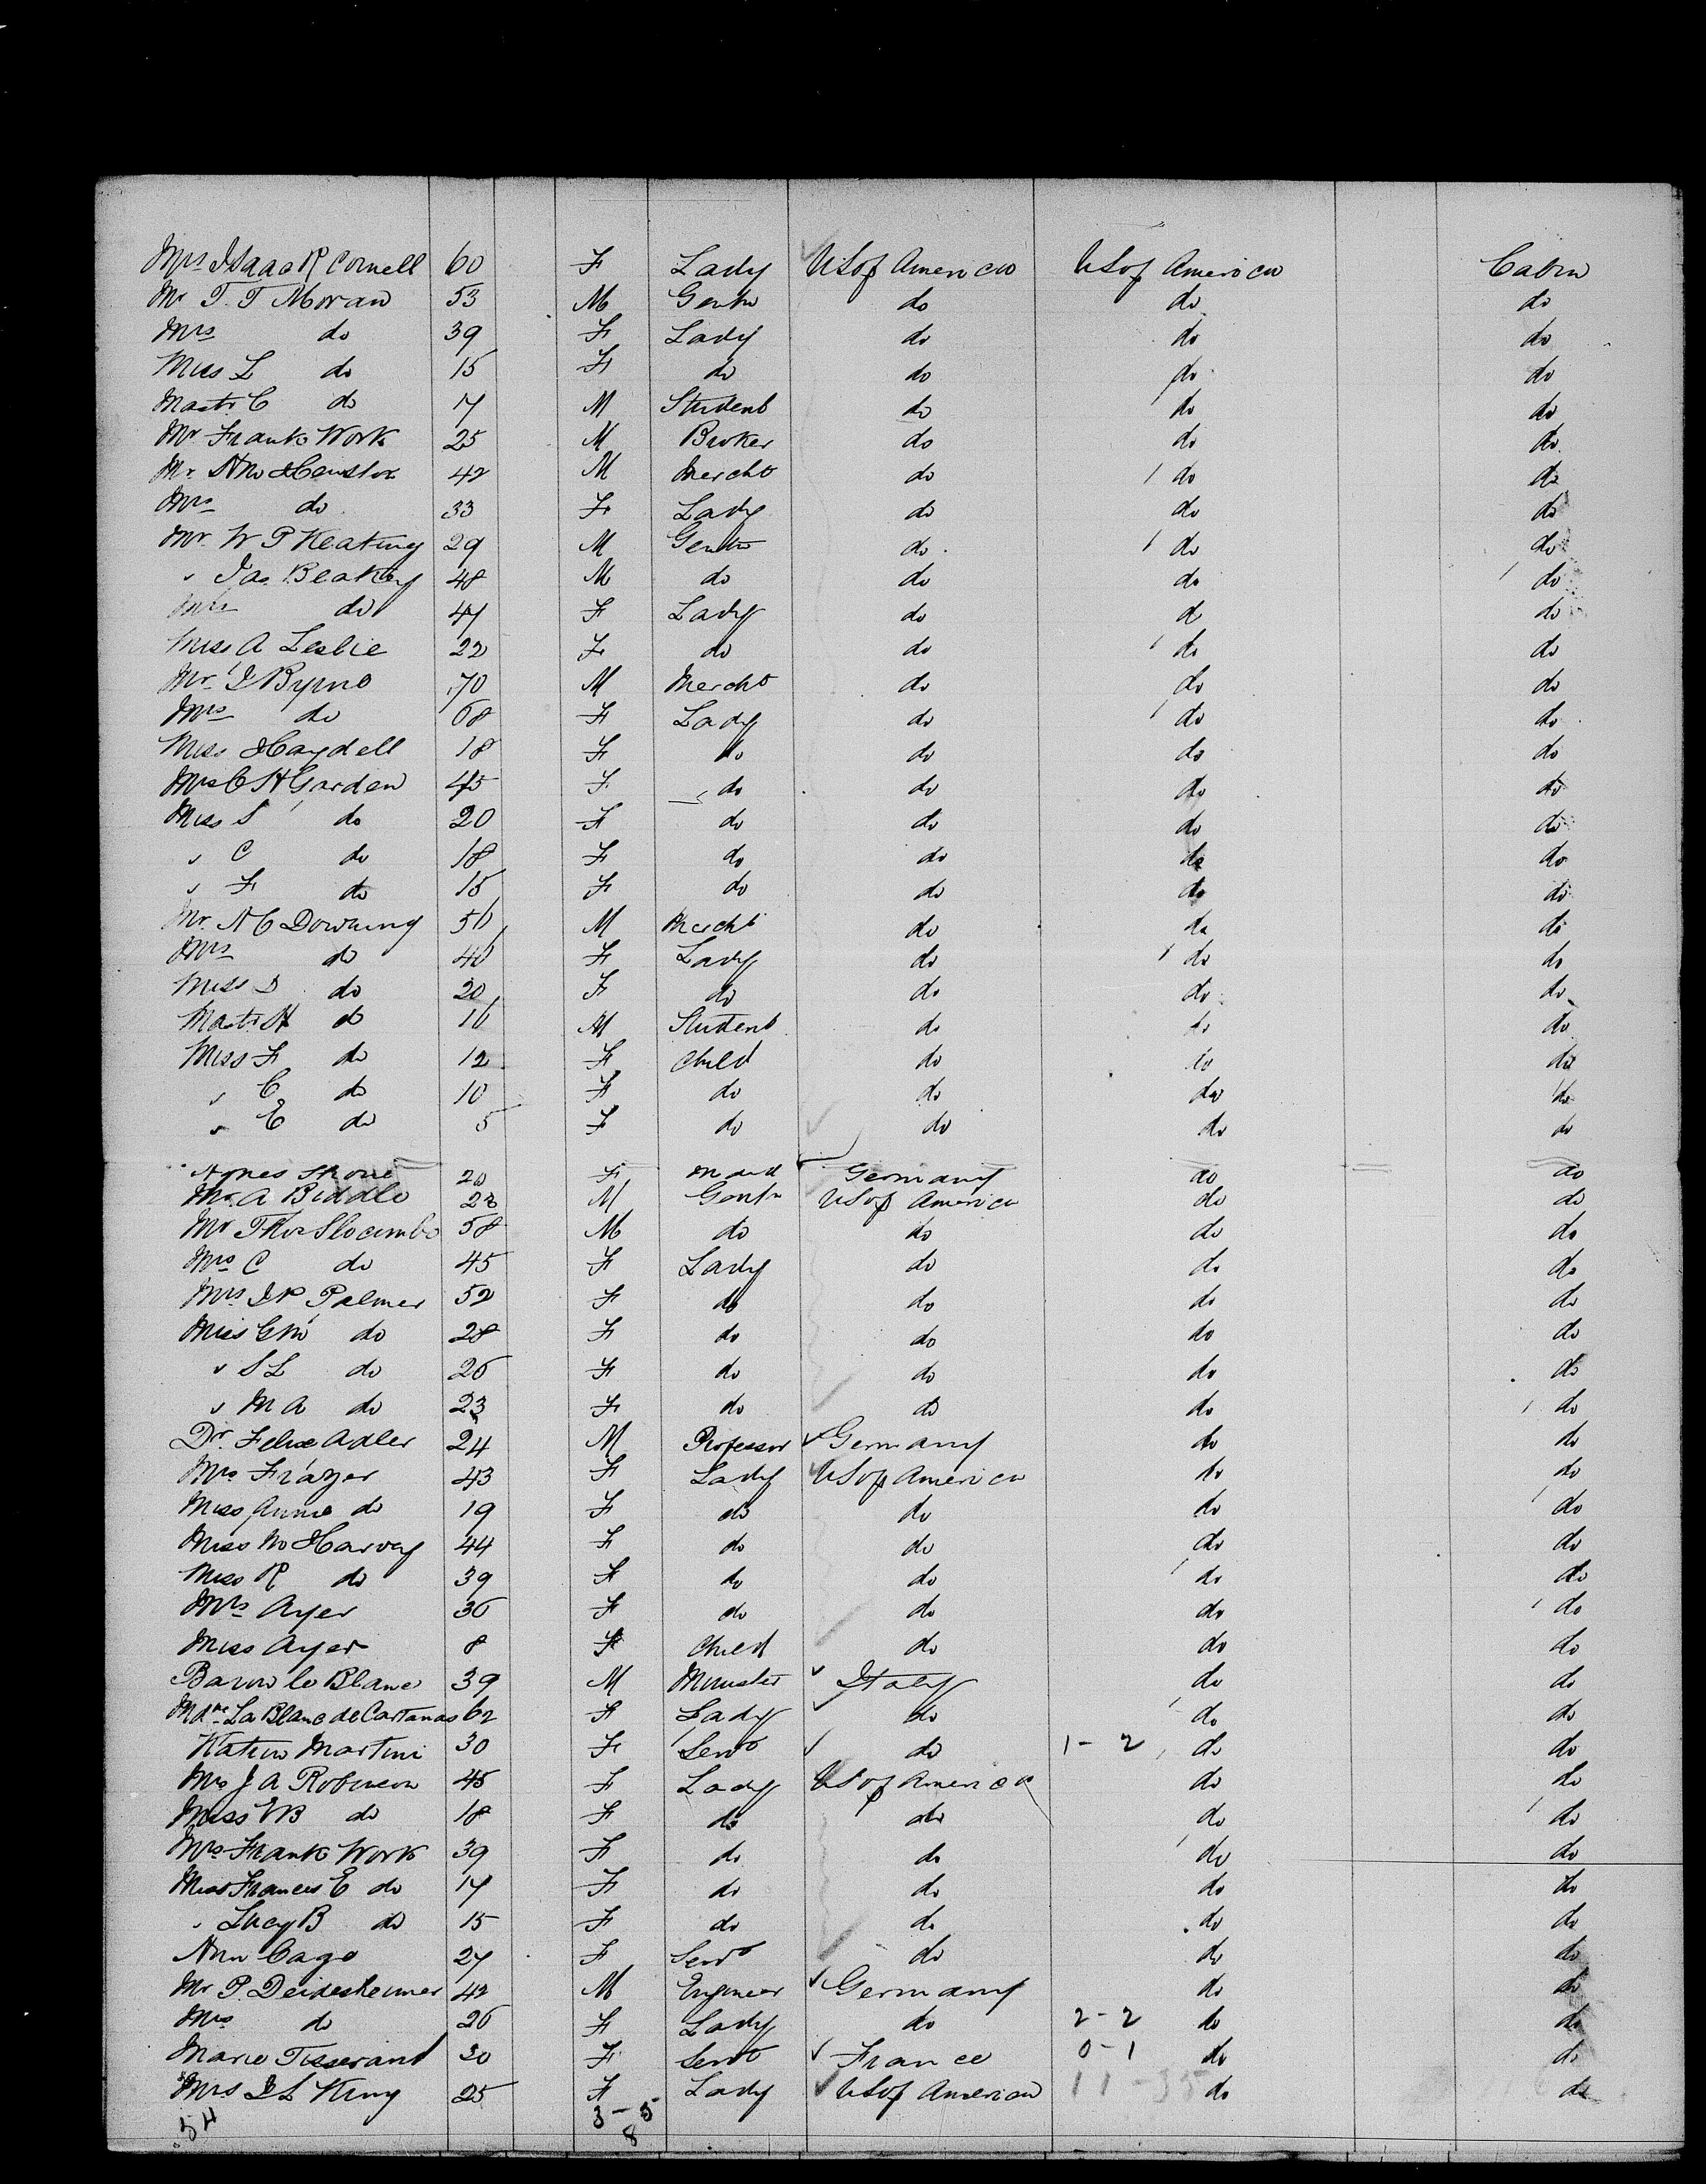 Mrs Isaac R Cornell 60 F Lady US of America US of America Cabin
Mr T. T Moran 53 M Gentn do do do
Mrs do 39 F Lady do do do
Miss L do 15 F do do do do
Mastr C do 17 M Student do do do
Mr Frank Work 25 M Broker do do do
Mr 42 M Mercht do do do
Mrs do 33 F Lady do do do
Mr W P Keating 29 M Gentn do do do
" Jas. Beakey 48 M do do do do
Mrs do 47 F Lady do do do
Miss A Leslie 22 F do do do do
Mr I Byrne 70 M Mercht do do do
Mrs do 68 F Lady do do do
Miss Haydell 18 F do do do do
Mrs C H Garden 45 F do do do do
Miss S do 20 F do do do do
" C do 18 F do do do do
" F do 15 F do do do do
Mr. N C Downing 56 M Mercht do do do
Mrs do 40 F Lady do do do
Miss D do 20 F do do do do
Mastr H do 16 M Student do do do
Miss F do 12 F Child do do do
" C do 10 F do do do do
" E do 5 F do do do do
Agnes 20 F Maid Germany do do
Mr. A Biddle 23 M Gentn US of America do do
Mr Thos Slocumbo 58 M do do do do
Mrs C do 45 F Lady do do do
Mrs I P Palmer 52 F do do do do
Miss G M do 28 F do do do do
" S L do 26 F do do do do
" M A do 23 F do do do do
Dr. Felix Adler 24 M Professor Germany do do
Mrs Frazer 43 F Lady US of America do do
Miss Annie do 19 F do do do do
Miss M Harvey 44 F do do do do
Miss R do 39 F do do do do
Mrs Ayer 36 F do do do do
Miss Ayer 8 F Child do do do
Baron le Blanc 39 M Minister Italy do do
Mdme La Blanc de Cartanas 62 F Lady do do do
Katrin Martini 30 F Servt do 1-2 do do
Mrs J A Robinson 45 F Lady US of America do do
Miss E B do 18 F do do do do
Mrs Frank Work 39 F do do do do
Miss Frances E do 17 F do do do do
" Lucy B do 15 F do do do do
Ann Cage 27 F Servt do do do
Mr P. Deidesheimer 42 M Engineer Germany do do
Mrs do 26 F Lady do 2-2 do do
Marie Tisserant 30 F Servt France 0-1 do do
Mrs I L King 25 F Lady US of American 11-35 do do
54 3-5
8